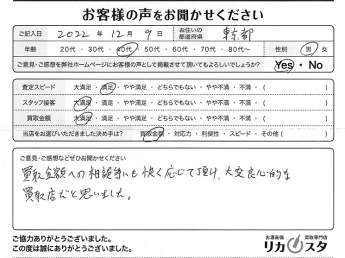 お客様の声をお聞かせください
ご記入日 2022 年 12 月 9 日 お住いの都道府県 東京都
年齢 20代・30代・40代・50代・60代・70代・80代〜 性別 男・女
ご意見・ご感想を弊社ホームページにお客様の声として掲載させて頂いてもよろしいでしょうか? Yes・No
査定スピード 大満足・満足・やや満足・どちらでもない・やや不満・不満・( )
スタッフ接客 大満足・満足・やや満足・どちらでもない・やや不満・不満・( )
買取金額 大満足・満足・やや満足・どちらでもない・やや不満・不満・( )
当店をお選びいただきました決め手は? 買取金額・対応力・利便性・スピード・その他( )
ご意見・ご感想などぜひお聞かせください
買取金額への相談事にも快く応じて頂け、大変良心的な
買取店だと思いました。
ご協力ありがとうございました。
この度は誠にありがとうございました。
お酒高価買取専門店
リカスタ